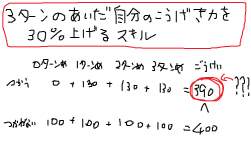 3ターンのあいだ自分のこうげき力を
30%上げるスキル
0ターンめ 1ターンめ 2ターンめ 3ターンめ ごうけい
つかう 0 + 130 + 130 + 130 = 390 ???
つかわない 100 + 100 + 100 + 100 = 400